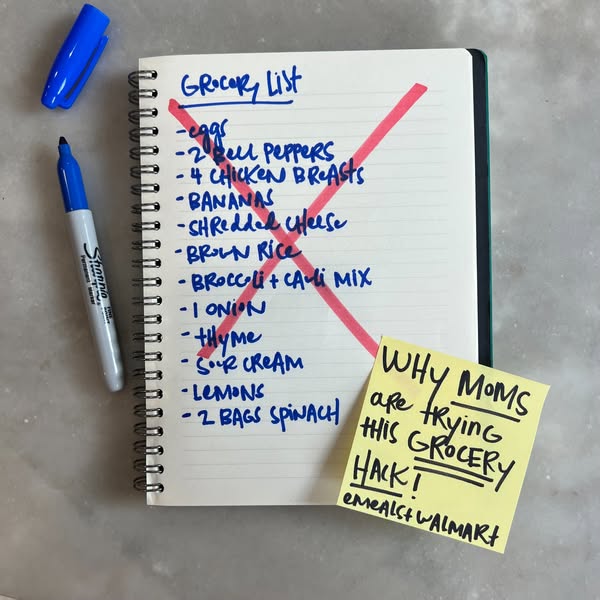 GROCERY LIST
- eggs
- 2 BELL PEPPERS
- 4 CHICKEN BREASTS
- BANANAS
- SHREDDED CHEESE
- BROWN RICE
- BROCCOLI + CAULI MIX
- 1 ONION
- THYME
- SOUR CREAM
- LEMONS
- 2 BAGS SPINACH
Sharpie
WHY MOMS
are trying
this GROCERY
HACK!
eMEALS + WALMART